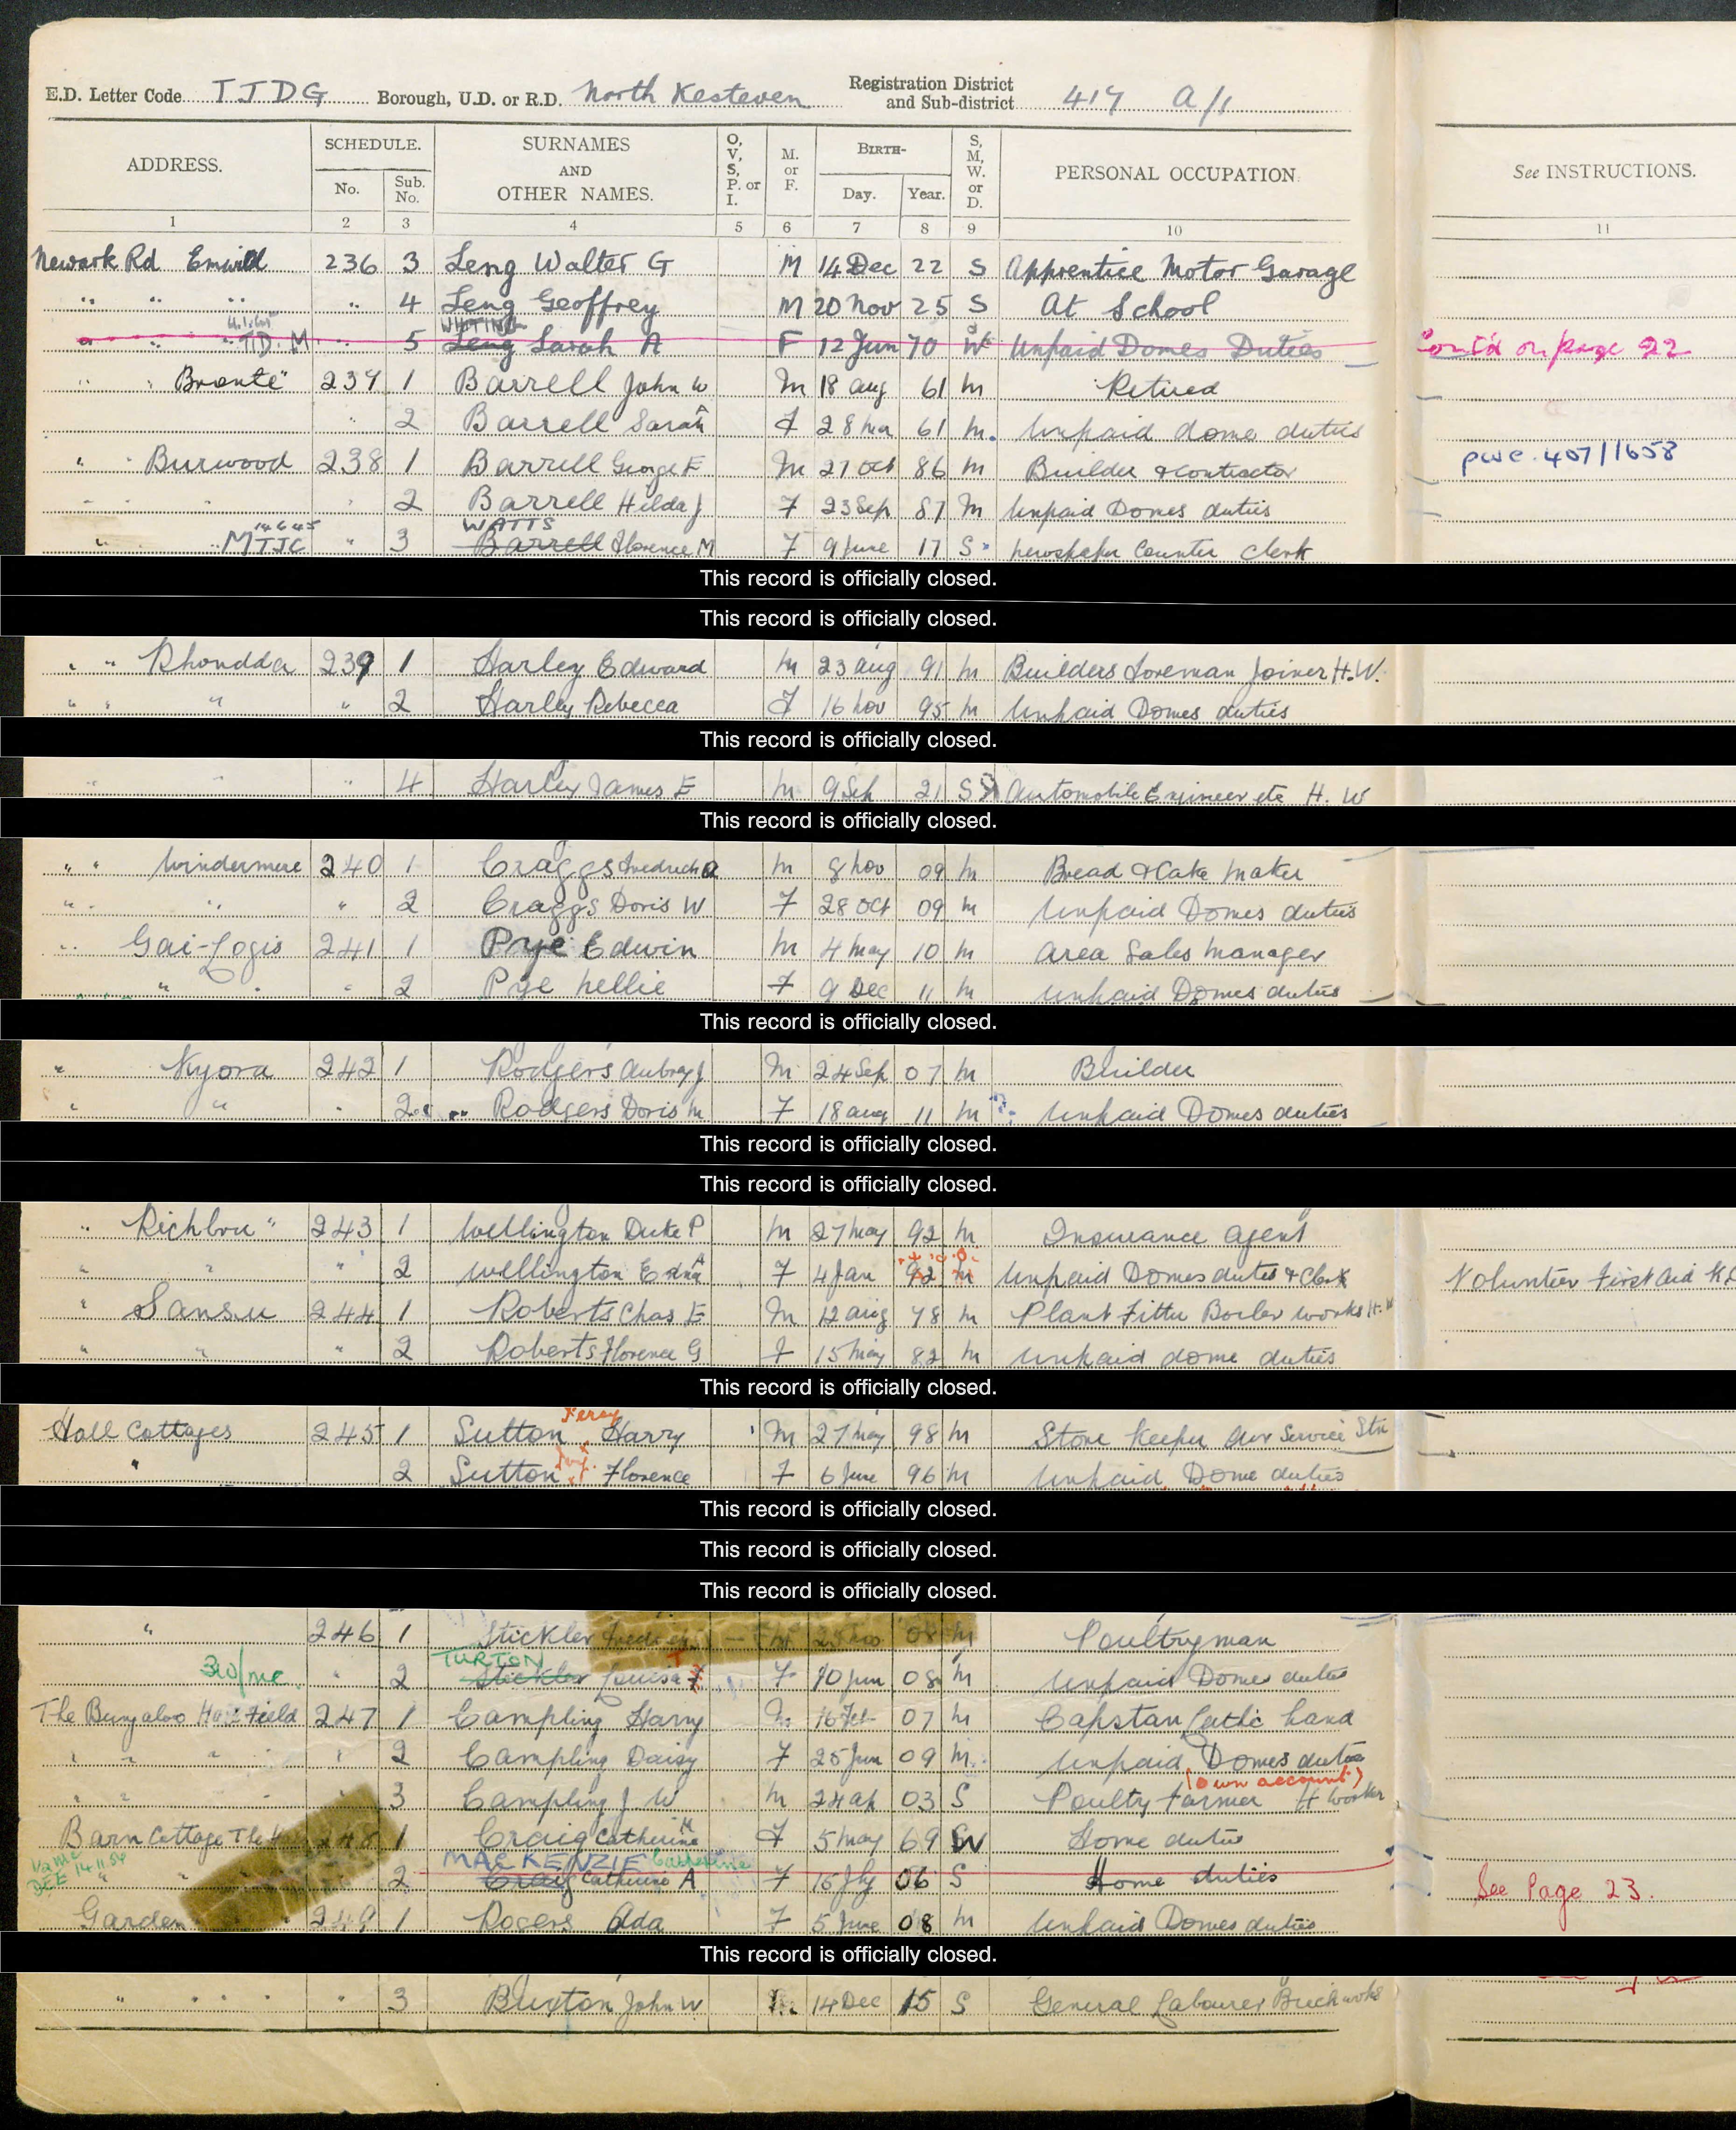 E.D. Letter Code TJDG Borough, U.D. or R.D. North Kesteven Registration District and Sub-district 417 A/1
ADDRESS. SCHEDULE. No. Sub. No. SURNAMES AND OTHER NAMES. O, V, S, P. or I. M. or F. BIRTH- Day. Year. S, M, W. or D. PERSONAL OCCUPATION. See INSTRUCTIONS.
1 2 3 4 5 6 7 8 9 10 11
Newark Rd Emwild 236 3 Leng Walter G M 14 Dec 22 S Apprentice Motor Garage
" " " " 4 Leng Geoffrey M 20 Nov 25 S At School
" " " TD. M " 5 WHITING Leng Sarah A F 12 Jun 70 W Unpaid Domes Duties Cont'd on page 22
" " Bronte" 237 1 Barrell John W M 18 Aug 61 M Retired
" 2 Barrell Sarah A F 28 Mar 61 M. Unpaid dome duties
" " Burwood 238 1 Barrell George E M 21 Oct 86 M Builder & Contractor pwc. 407/1658
" " " " 2 Barrell Hilda J F 23 Sep 87 M Unpaid Domes duties
" 14 6 45 MTJC " 3 WATTS Barrell Florence M F 9 June 17 S newspaper Counter Clerk
This record is officially closed.
This record is officially closed.
" " Rhondda 239 1 Harley Edward M 23 Aug 91 M Builders Foreman Joiner H.W.
" " " " 2 Harley Rebecca F 16 Nov 95 M Unpaid Domes duties
This record is officially closed.
" " " 4 Harley James E M 9 Sep 21 S Automobile Engineer etc H. W
This record is officially closed.
" " Windermere 240 1 Craggs Fredrick A M 8 Nov 09 M Bread & Cake Maker
" " " " 2 Craggs Doris W F 28 Oct 09 M Unpaid Domes duties
" " Gai-Logis 241 1 Pye Edwin M 4 May 10 M Area Sales Manager
" " " 2 Pye Nellie F 9 Dec 11 M Unpaid Domes duties
This record is officially closed.
" Nyora 242 1 Rodgers Aubrey J M 24 Sep 07 M Builder
" " " 2 Rodgers Doris M F 18 Aug 11 M Unpaid Domes duties
This record is officially closed.
This record is officially closed.
" Richbru" 243 1 Wellington Duke P M 27 May 92 M Insurance Agent
" " " 2 Wellington Edna A F 4 Jan 92 M Unpaid Domes duties & Clerk Volunteer First Aid
" Sansu 244 1 Roberts Chas E M 12 Aug 78 M Plant Fitter Boiler works H.W
" " " 2 Roberts Florence G F 15 May 82 M Unpaid dome duties
This record is officially closed.
Hall Cottages 245 1 Sutton Percy Harry M 27 May 98 M Store Keeper Air Service Stn
" 2 Sutton Florence F 6 June 96 M Unpaid Dome duties
This record is officially closed.
This record is officially closed.
This record is officially closed.
" 246 1 Stickler M 08 M Poultryman
30/mc " 2 TURTON Stickler Louisa F 10 Jun 08 M Unpaid Domes duties
The Bungaloo Field 247 1 Campling Harry M 16 Feb 07 M Capstan Lathe hand
" " " " 2 Campling Daisy F 25 Jun 09 M Unpaid Domes duties
" " " 3 Campling J W M 24 Ap 03 S Poultry Farmer (own account) H Worker
Barn Cottage The 248 1 Craig Catherine M F 5 May 69 W Home duties
14 11 54 " 2 MACKENZIE Catherine Craig Catherine A F 16 Jly 06 S Home duties See Page 23.
Garden 249 1 Rogers Ada F 5 June 08 M Unpaid Domes duties
This record is officially closed.
" " " " " 3 Buxton John W M 14 Dec 15 S General Labourer Brickworks